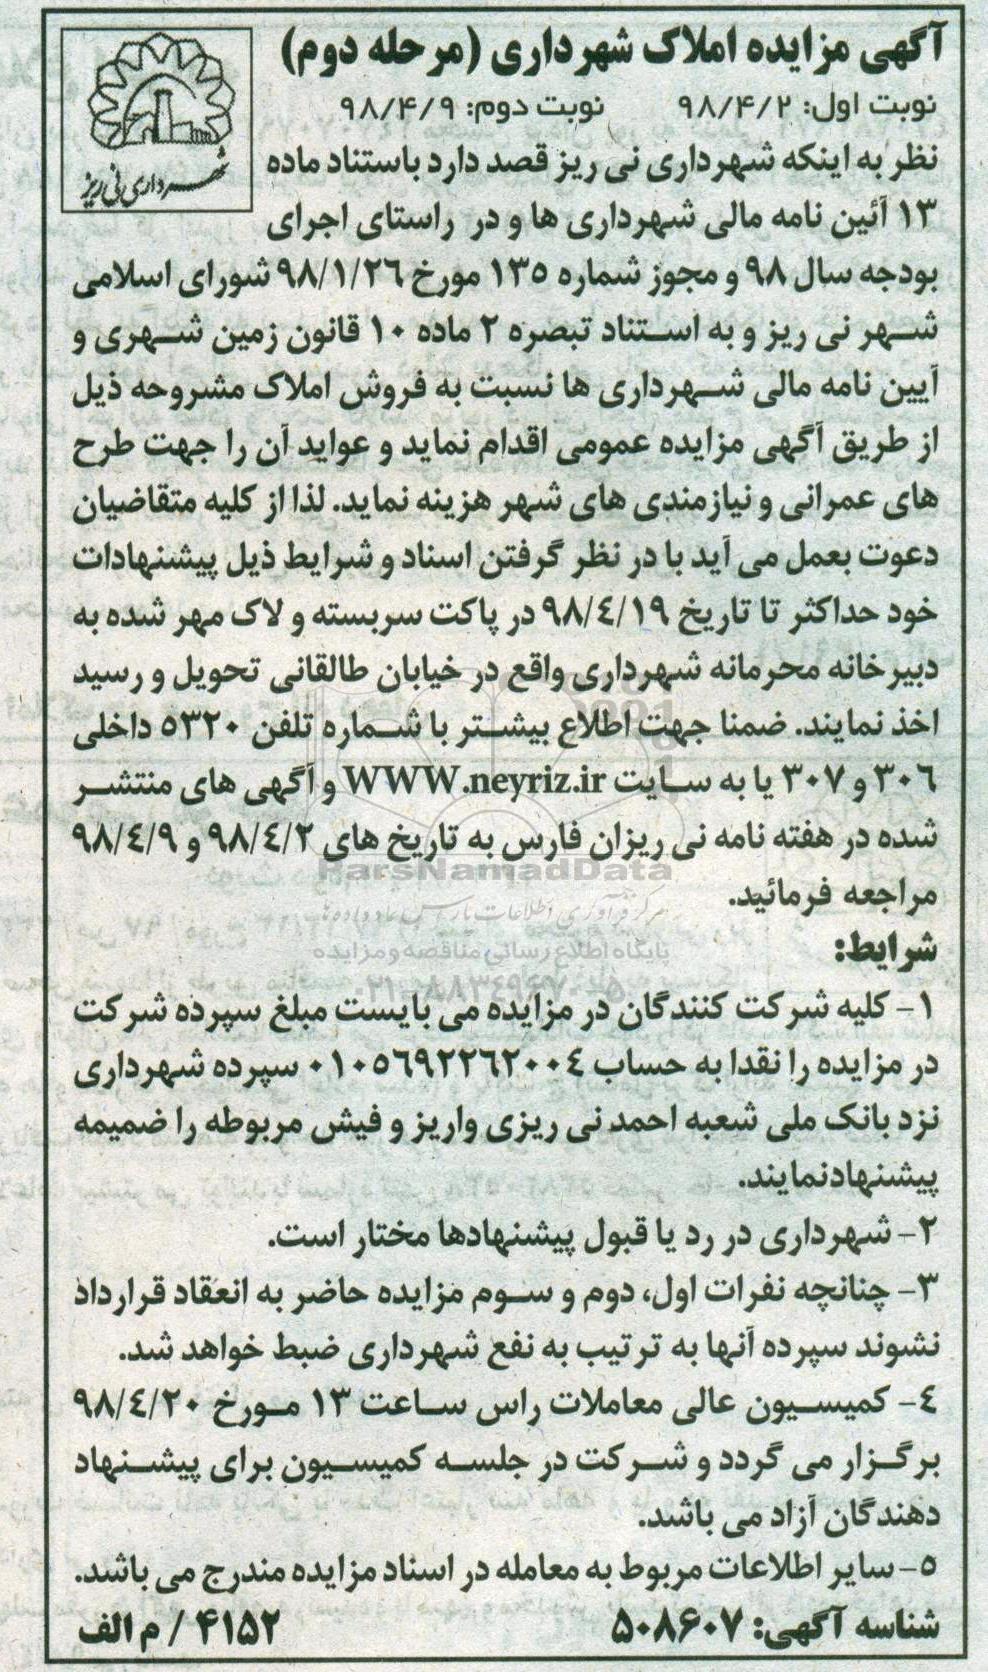 آگهی مزایده املاک شهرداری (مرحله دوم)
نوبت اول: ۹۸/۴/۲ نوبت دوم: ۹۸/۴/۹
شهرداری نی ریز
نظر به اینکه شهرداری نی ریز قصد دارد باستناد ماده
۱۳ آئین نامه مالی شهرداری ها و در راستای اجرای
بودجه سال ۹۸ و مجوز شماره ۱۳۵ مورخ ۹۸/۱/۲۶ شورای اسلامی
شهر نی ریز و به استناد تبصره ۲ ماده ۱۰ قانون زمین شهری و
آیین نامه مالی شهرداری ها نسبت به فروش املاک مشروحه ذیل
از طریق آگهی مزایده عمومی اقدام نماید و عواید آن را جهت طرح
های عمرانی و نیازمندی های شهر هزینه نماید. لذا از کلیه متقاضیان
دعوت بعمل می آید با در نظر گرفتن اسناد و شرایط ذیل پیشنهادات
خود حداکثر تا تاریخ ۹۸/٤/۱۹ در پاکت سربسته و لاک مهر شده به
دبیرخانه محرمانه شهرداری واقع در خیابان طالقانی تحویل و رسید
اخذ نمایند. ضمنا جهت اطلاع بیشتر با شماره تلفن ۵۳۲۰ داخلی
۳۰۶ و ۳۰۷ یا به سایت WWW.neyriz.ir و آگهی های منتشر
شده در هفته نامه نی ریزان فارس به تاریخ های ۹۸/٤/۲ و ۹۸/٤/۹
مراجعه فرمائید.
ParsNamadData
پایگاه اطلاع رسانی مناقصه و مزایده
شرایط:
۱- کلیه شرکت کنندگان در مزایده می بایست مبلغ سپرده شرکت
در مزایده را نقدا به حساب ۰۱۰۵۶۹۲۲۶۲۰۰٤ سپرده شهرداری
نزد بانک ملی شعبه احمد نی ریزی واریز و فیش مربوطه را ضمیمه
پیشنهادنمایند.
۲- شهرداری در رد یا قبول پیشنهادها مختار است.
۳- چنانچه نفرات اول، دوم و سوم مزایده حاضر به انعقاد قرارداد
نشوند سپرده آنها به ترتیب به نفع شهرداری ضبط خواهد شد.
٤- کمیسیون عالی معاملات راس ساعت ۱۳ مورخ ۹۸/٤/۲۰
برگزار می گردد و شرکت در جلسه کمیسیون برای پیشنهاد
دهندگان آزاد می باشد.
۵- سایر اطلاعات مربوط به معامله در اسناد مزایده مندرج می باشد.
شناسه آگهی: ۵۰۸۶۰۷ ۴۱۵۲ / م الف